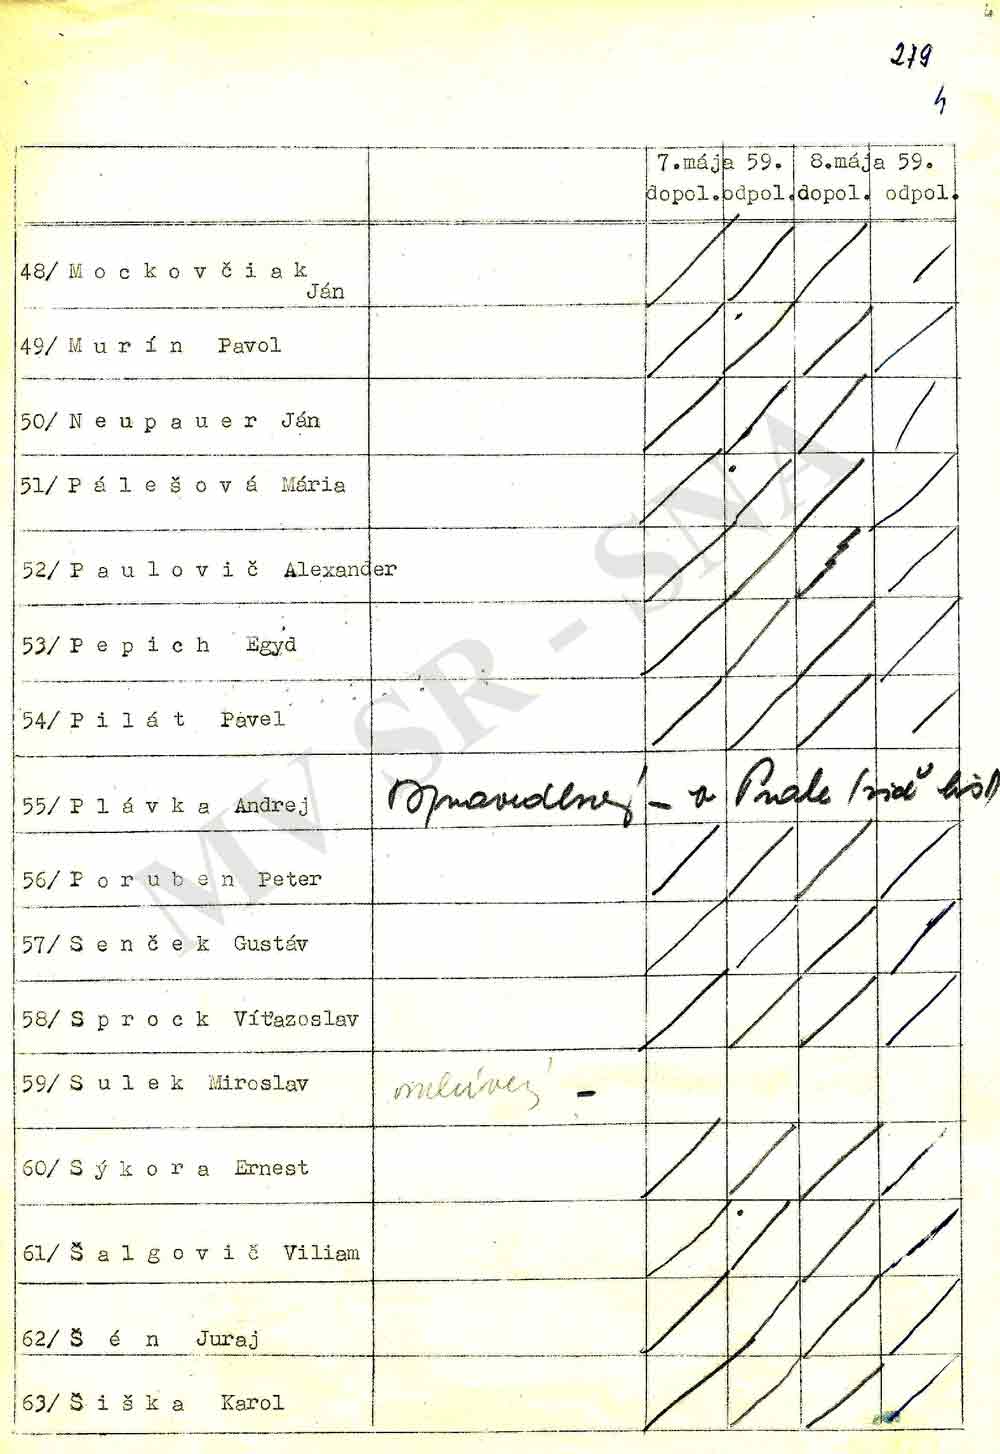 279
4
7.mája 59. 8.mája 59.
dopol. odpol. dopol. odpol.
48/ M o c k o v č i a k
Ján
49/ M u r í n Pavol
50/ N e u p a u e r Ján
51/ P á l e š o v á Mária
52/ P a u l o v i č Alexander
53/ P e p i c h Egýd
54/ P i l á t Pavel
55/ P l á v k a Andrej
56/ P o r u b e n Peter
57/ S e n č e k Gustáv
58/ S p r o c k Víťazoslav
59/ S u l e k Miroslav
60/ S ý k o r a Ernest
61/ Š a l g o v i č Viliam
62/ Š é n Juraj
63/ Š i š k a Karol
MV SR - SNA